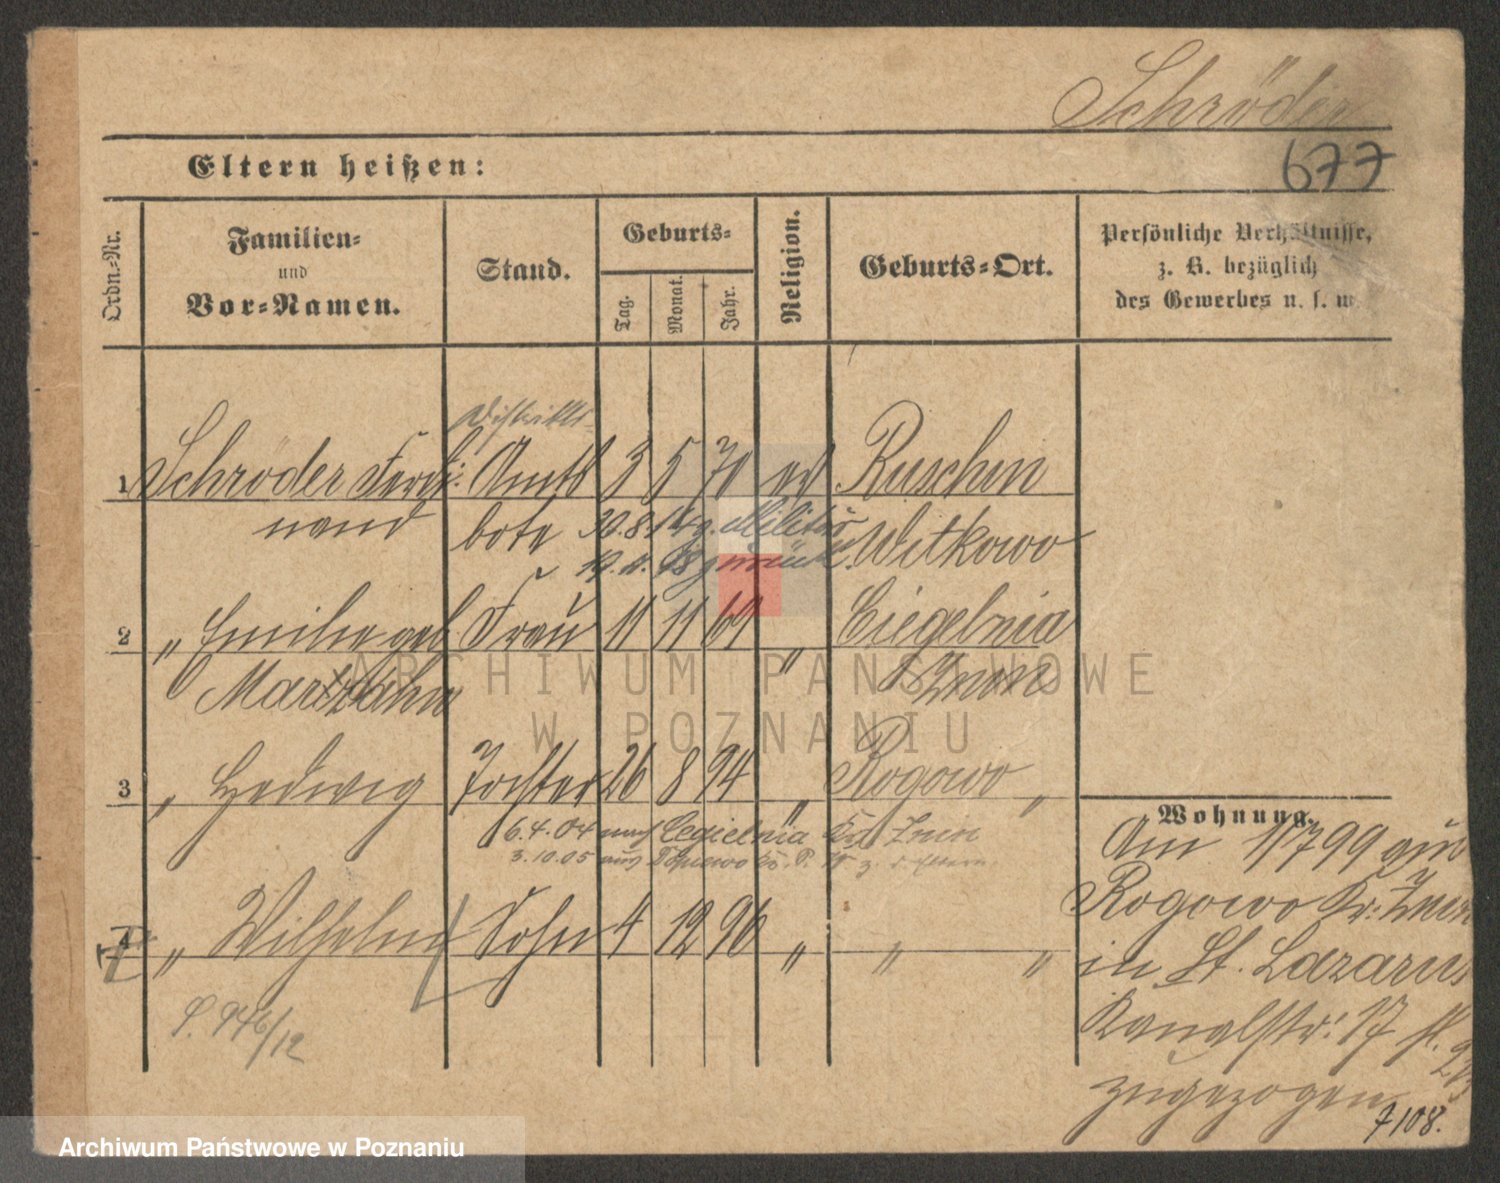 Schröder
677
Eltern heißen:
Ordn.-Nr.
Familien-
und
Vor-Namen.
Stand.
Geburts-
Tag.
Monat.
Jahr.
Religion.
Geburts-Ort.
Persönliche Verhältnisse,
z. B. bezüglich
des Gewerbes u. s. w.
Distrikts-
1 Schröder Ferdi: Amts 3 5 70 ev Ruschen
nand bote 30.8.14 z. Militär Witkowo
zurück.
2 " Emilie geb. Frau 11 11 69 " Ciegelnia
Marzahn Znin
3 " Hedwig Tochter 26 8 94 " Rogowo "
6.4.04 nach Cegielnia Kr. Znin
3.10.05 aus
4 " Wilhelm Sohn 4 12 96 " " "
P. 946/12
Wohnung.
Am 1/7 99 aus
Rogowo Kr: Znin
in St. Lazarus
Kanalstr: 17
zugezogen
7108.
ARCHIWUM PAŃSTWOWE
W POZNANIU
Archiwum Państwowe w Poznaniu